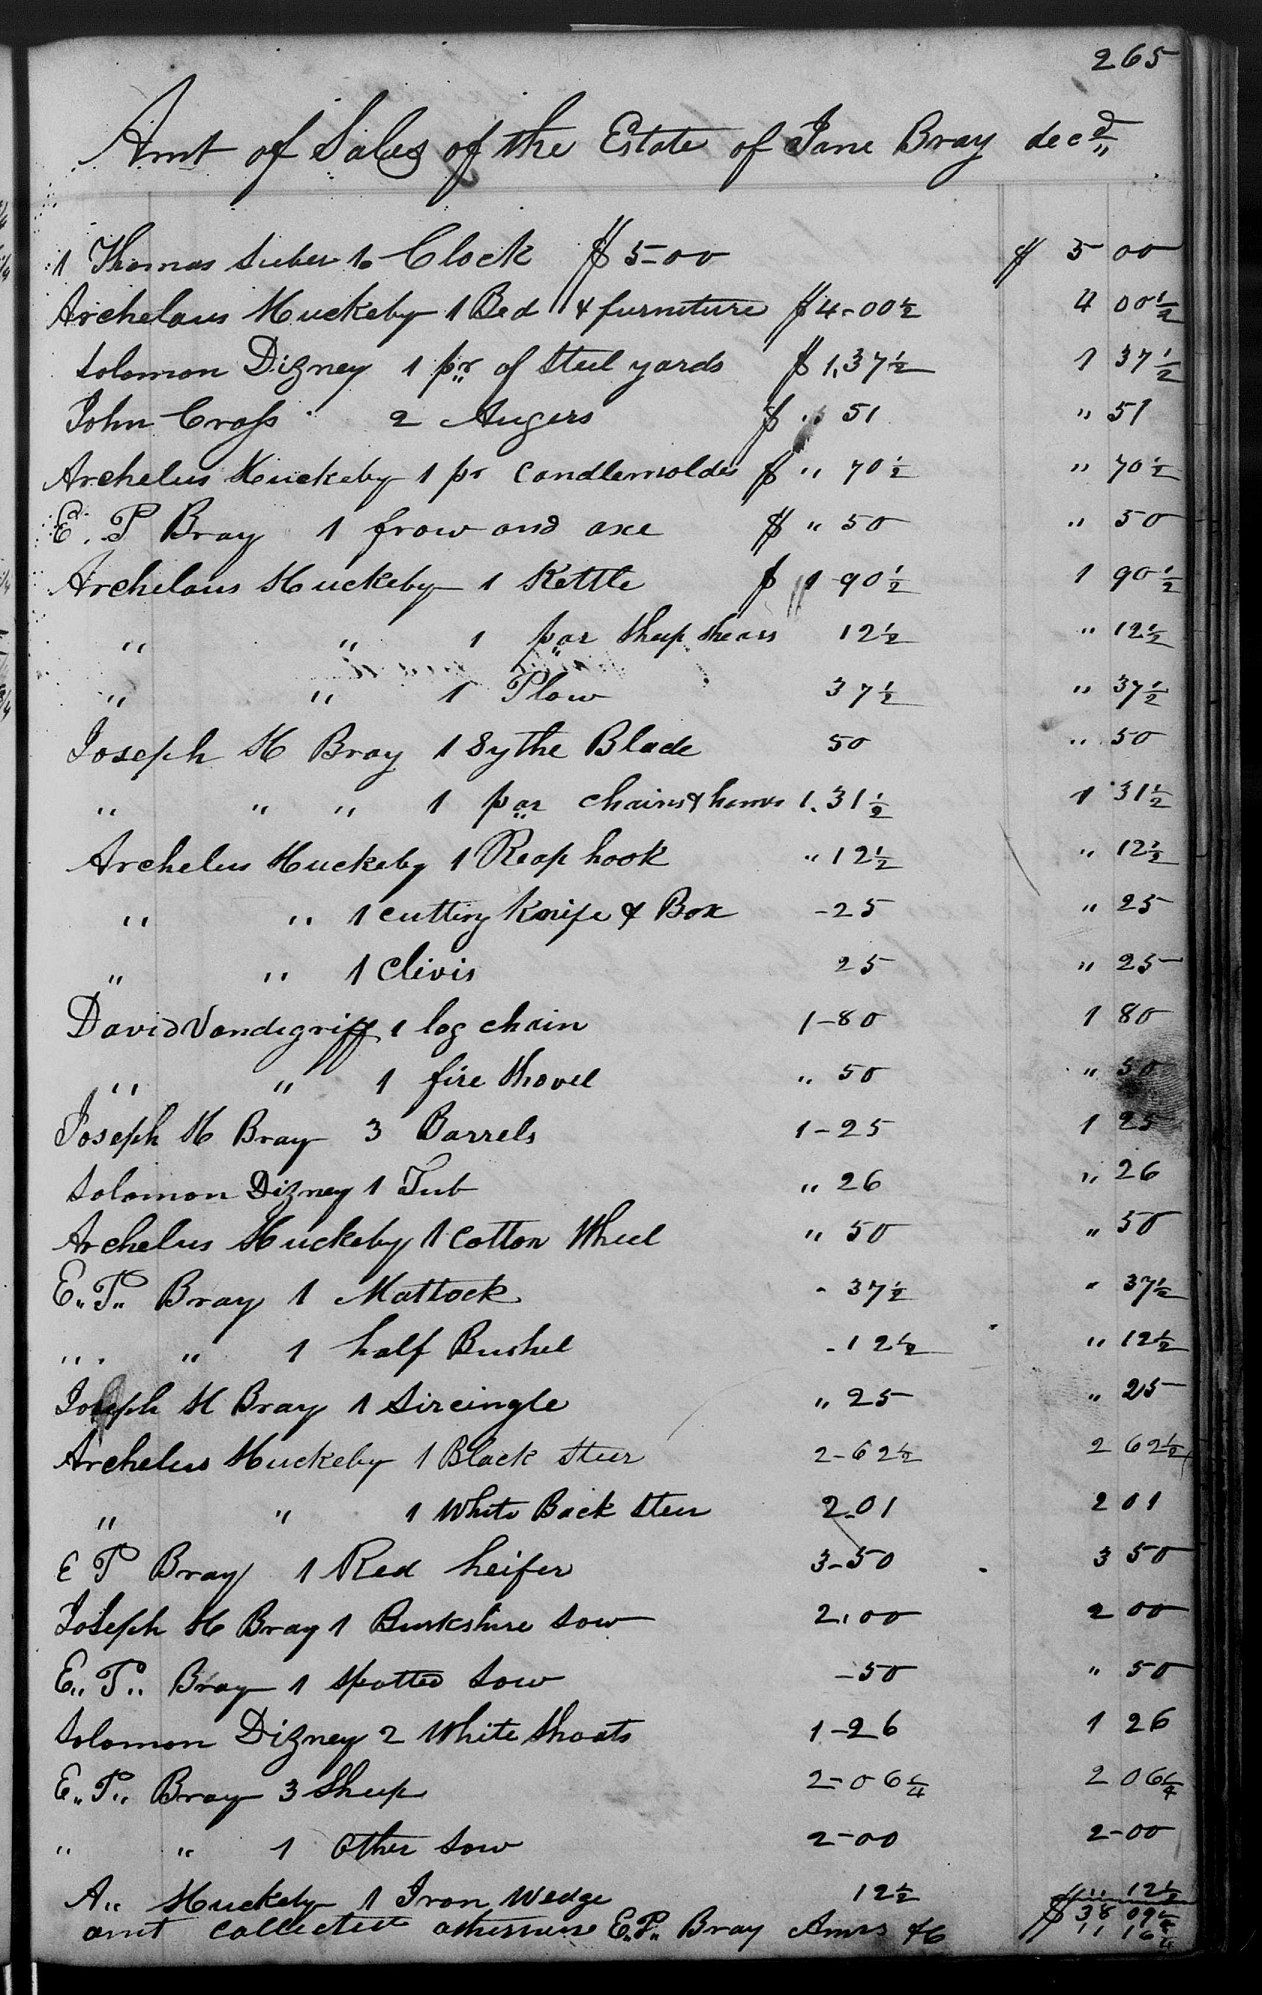 265
Amt of Sales of the Estate of Jane Bray decd
1 Thomas Suber to Clock $ 5-00 $ 5 00
Archelaus Huckeby 1 Bed & furniture $ 4-00½ 4 00½
Solomon Dizney 1 pr of Steel yards $ 1,37½ 1 37½
John Cross 2 Augers $ " 51 " 51
Archelus Huckeby 1 pr Candlemoldes $ " 70½ " 70½
E. P Bray 1 frow and axe $ " 50 " 50
Archelaus Huckeby 1 Kettle $ 1-90½ 1 90½
" " 1 par Sheep Shears 12½ " 12½
" " 1 Plow 37½ " 37½
Joseph H Bray 1 Sythe Blade 50 " 50
" " " 1 par chains & hames 1.31½ 1 31½
Archelus Huckeby 1 Reap hook " 12½ " 12½
" " 1 cutting Knife & Box -25 " 25
" " 1 Clivis 25 " 25
David Vandegriff 1 log chain 1-80 1 80
" " 1 fire Shovel " 50 " 50
Joseph H Bray 3 Barrels 1-25 1 25
Solomon Dizney 1 Tub " 26 " 26
Archelus Huckeby 1 Cotton Wheel " 50 " 50
E" P" Bray 1 Mattock - 37½ " 37½
" " 1 half Bushel - 12½ " 12½
Joseph H Bray 1 Sircingle " 25 " 25
Archelus Huckeby 1 Black Steer 2-62½ 2 62½
" " 1 White Back Steer 2-01 2 01
E P Bray 1 Red heifer 3-50 3 50
Joseph H Bray 1 Burkshire Sow 2,00 2 00
E" P" Bray 1 Spotted Sow -50 " 50
Solomon Dizney 2 White Shoats 1-26 1 26
E" P" Bray 3 Sheep 2-06¼ 2 06¼
" " 1 Other Sow 2-00 2-00
A" Huckeby 1 Iron Wedge 12½ " 12½
$ 38 09¼
amt collected otherwise E" P" Bray Amrs &c 11 16¼